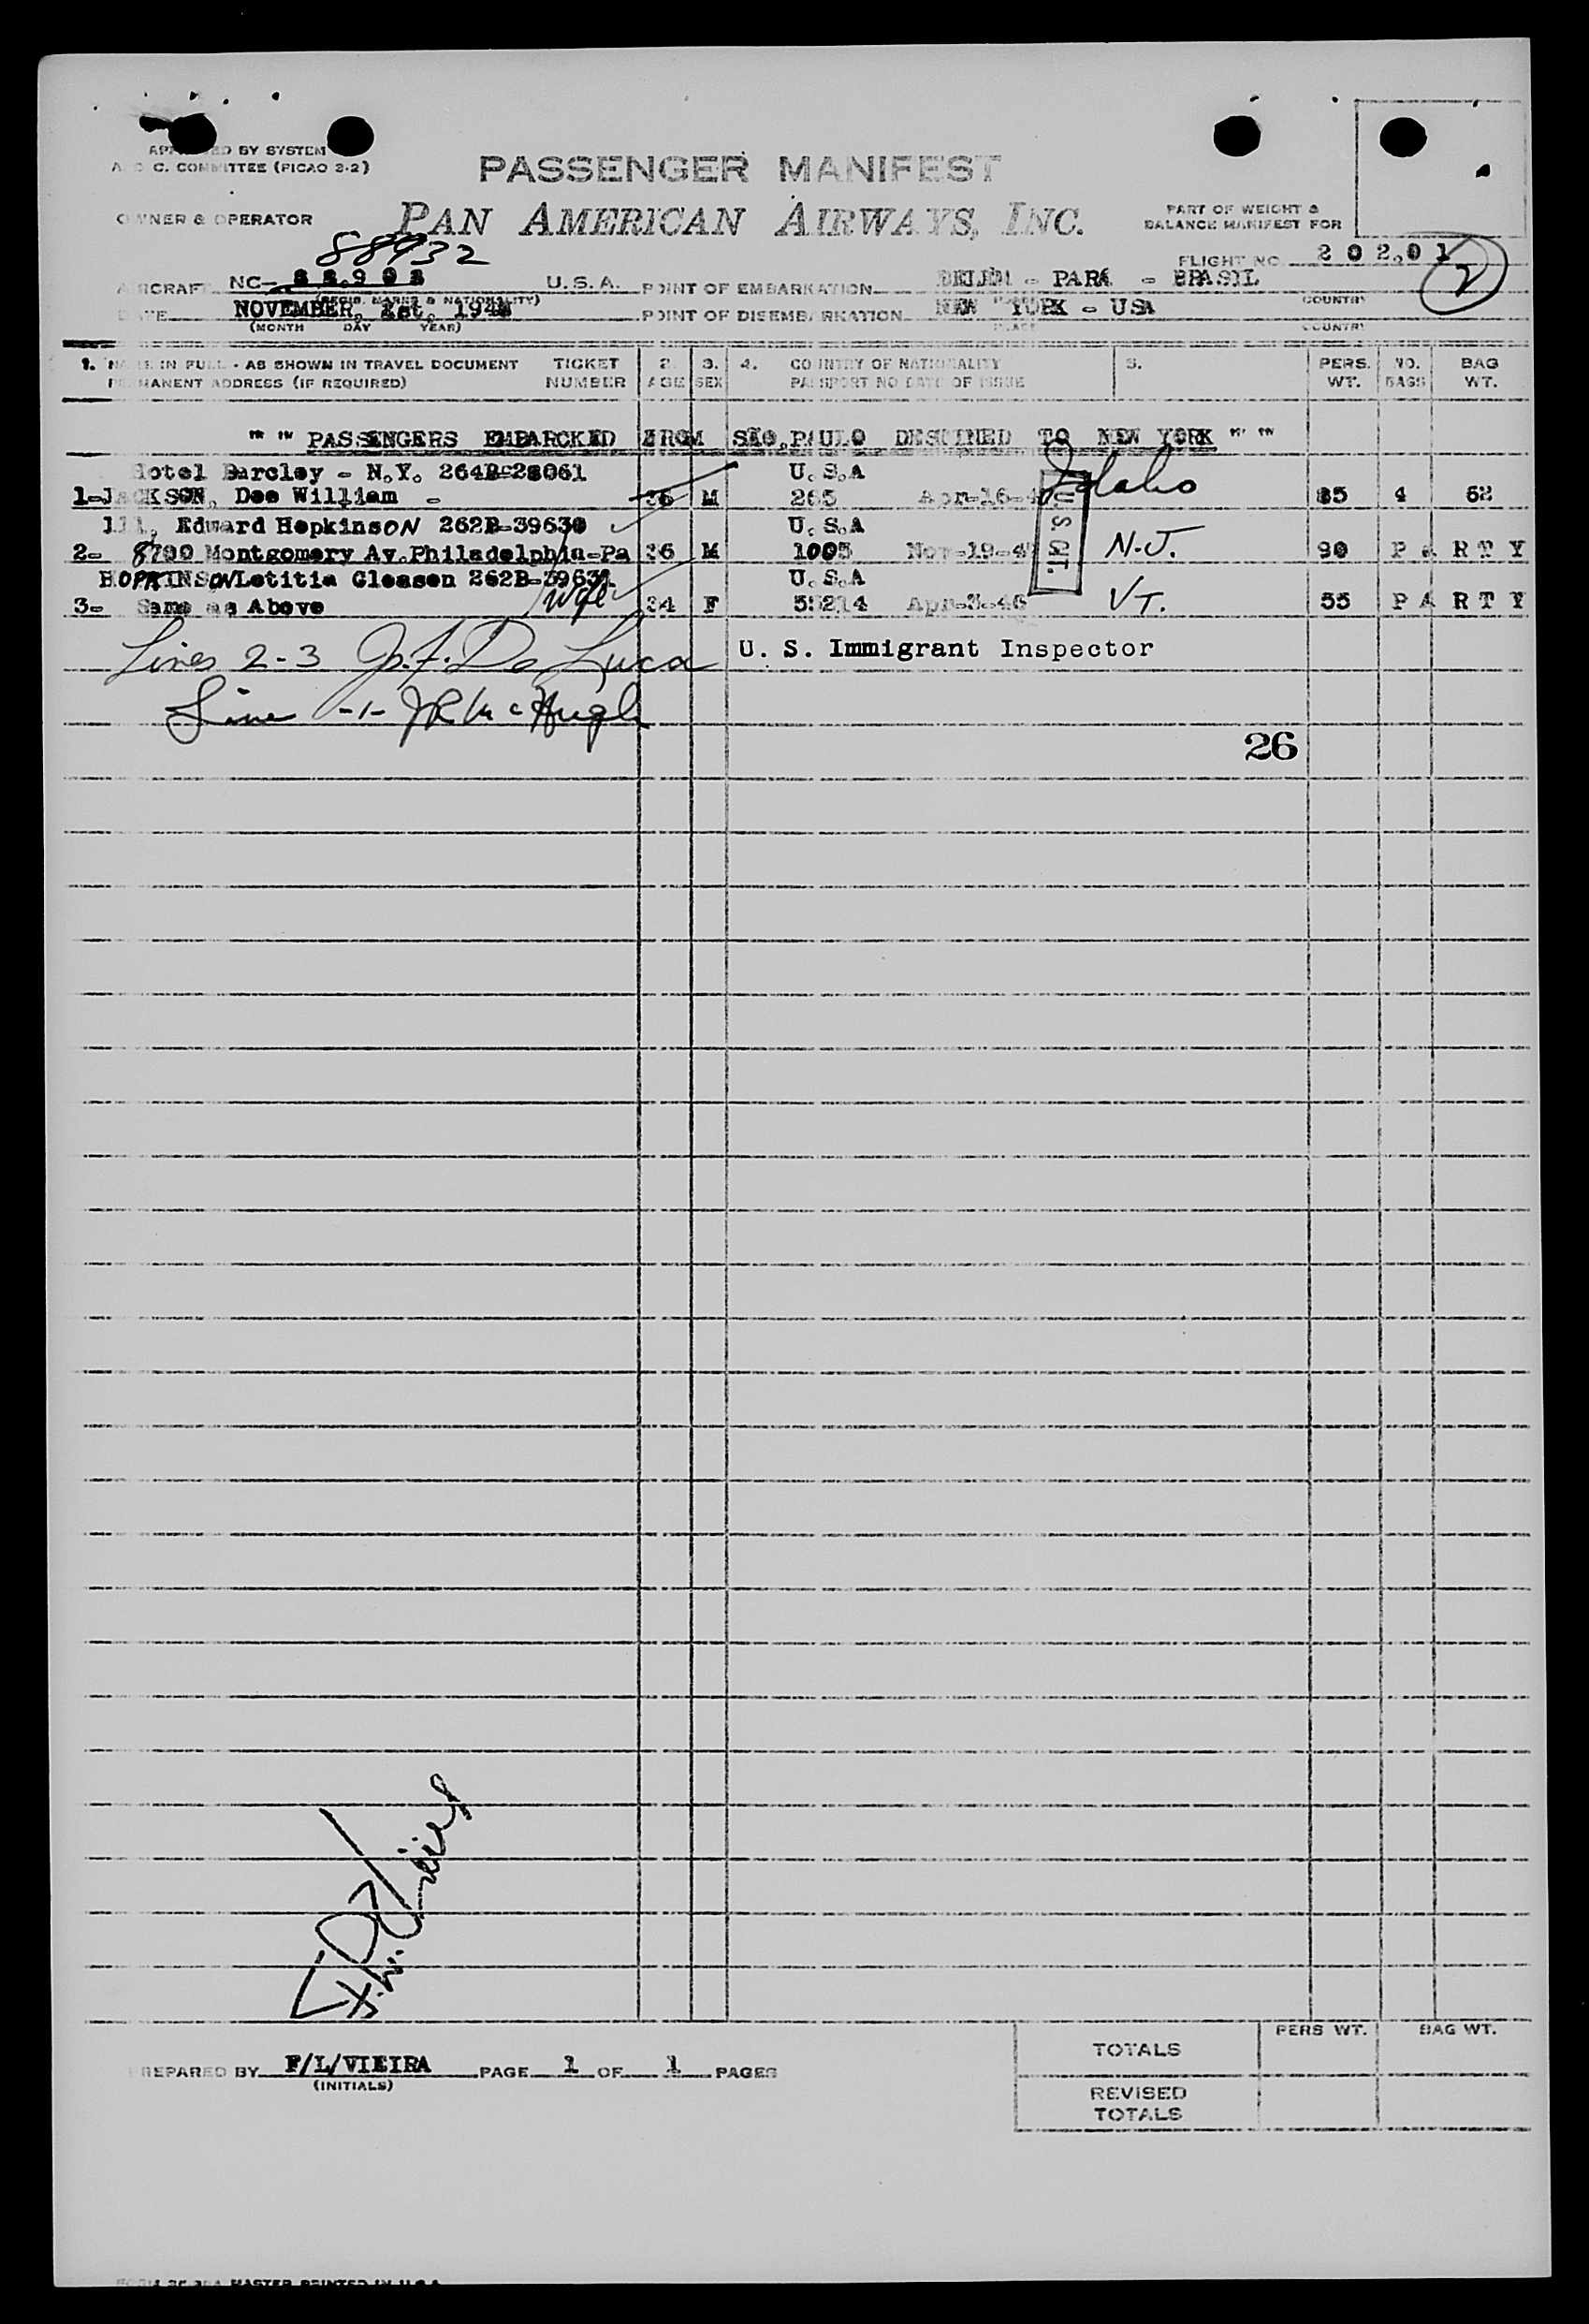 BY SYSTEM
C. COMMITTEE (PICAO 3-2)
PASSENGER MANIFEST
OWNER & OPERATOR PAN AMERICAN AIRWAYS, INC.
PART OF WEIGHT &
BALANCE MANIFEST FOR
88932
FLIGHT NO. 2 0 2.0 1 2
AIRCRAFT NC- U.S.A. POINT OF EMBARKATION BELEM - PARA - BRASIL
(REGIS. MARKS & NATIONALITY) COUNTRY
DATE NOVEMBER, 194 POINT OF DISEMBARKATION NEW YORK - USA
(MONTH DAY YEAR) PLACE COUNTRY
1. NAME IN FULL - AS SHOWN IN TRAVEL DOCUMENT TICKET 2. 3. 4. COUNTRY OF NATIONALITY 5. PERS. NO. BAG
PERMANENT ADDRESS (IF REQUIRED) NUMBER AGE SEX PASSPORT NO DATE OF ISSUE WT. BAGS WT.
"" "" PASSENGERS EMBARCKED FROM SÃO.PAULO DESTINED TO NEW YORK "" ""
Hotel Barcley - N.Y. 264B-28061 U.S.A
1-JACKSON, Dee William - 36 M 265 Apr-16-4 Idaho 85 4 62
Edward HopkinsON 262B-39630 U.S.A
2- 8700 Montgomery Av.Philadelphia-Pa 36 M 1005 Nov-19-4 N.J. 90 P A R T Y
HOPKINSON Letitia Gleasen 262B-39631 U.S.A
3- Same as Above wife 34 F 55214 Apr-3-46 VT. 55 P A R T Y
U S CT.
Lines 2-3 Jo. F. De Luca U. S. Immigrant Inspector
Line -1- JR McHugh
26
F. L. Vieira
PREPARED BY F/L/VIEIRA PAGE 1 OF 1 PAGES
(INITIALS)
PERS WT. BAG WT.
TOTALS
REVISED
TOTALS
MASTER PRINTED IN U.S.A.